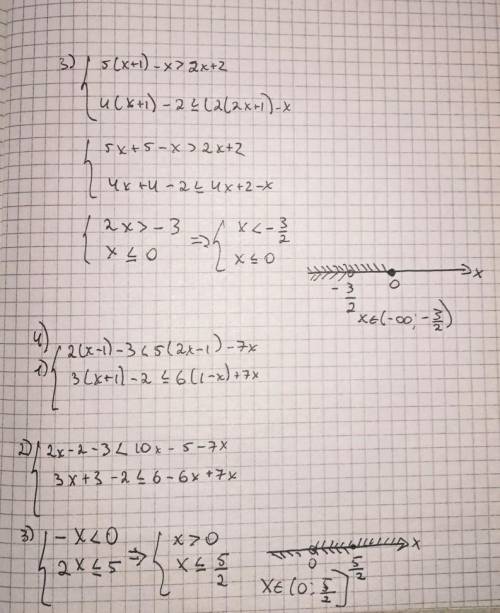 3) { 5(x+1) - x > 2x+2
4(x+1) - 2 ≤ (2(2x+1) - x
{ 5x + 5 - x > 2x+2
4x+4 - 2 ≤ 4x+2 - x
{ 2x > - 3 => { x < - 3/2
x ≤ 0 x ≤ 0
- 3/2 0 x
x∈(-∞; - 3/2)
4)
1) { 2(x-1) - 3 < 5(2x-1) - 7x
3(x+1) - 2 ≤ 6(1-x) + 7x
2) { 2x - 2 - 3 < 10x - 5 - 7x
3x + 3 - 2 ≤ 6 - 6x + 7x
3) { - x < 0 => { x > 0
2x ≤ 5 x ≤ 5/2
0 5/2 x
x∈(0; 5/2]